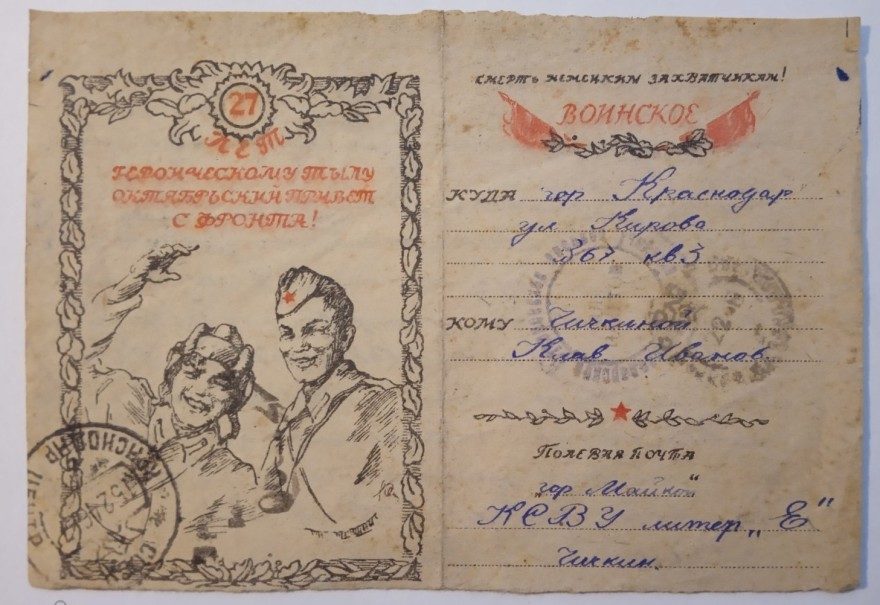 27
ЛЕТ
ГЕРОИЧЕСКОМУ ТЫЛУ
ОКТЯБРЬСКИЙ ПРИВЕТ
С ФРОНТА!
КРАСНОДАР
СМЕРТЬ НЕМЕЦКИМ ЗАХВАТЧИКАМ!
ВОИНСКОЕ
КУДА гор Краснодар
ул Кирова
кв 3
КОМУ Чичкиной
Клав. Иванов.
ПОЛЕВАЯ ПОЧТА
"гор Майкоп"
КСВУ литер "Е"
Чичкин.